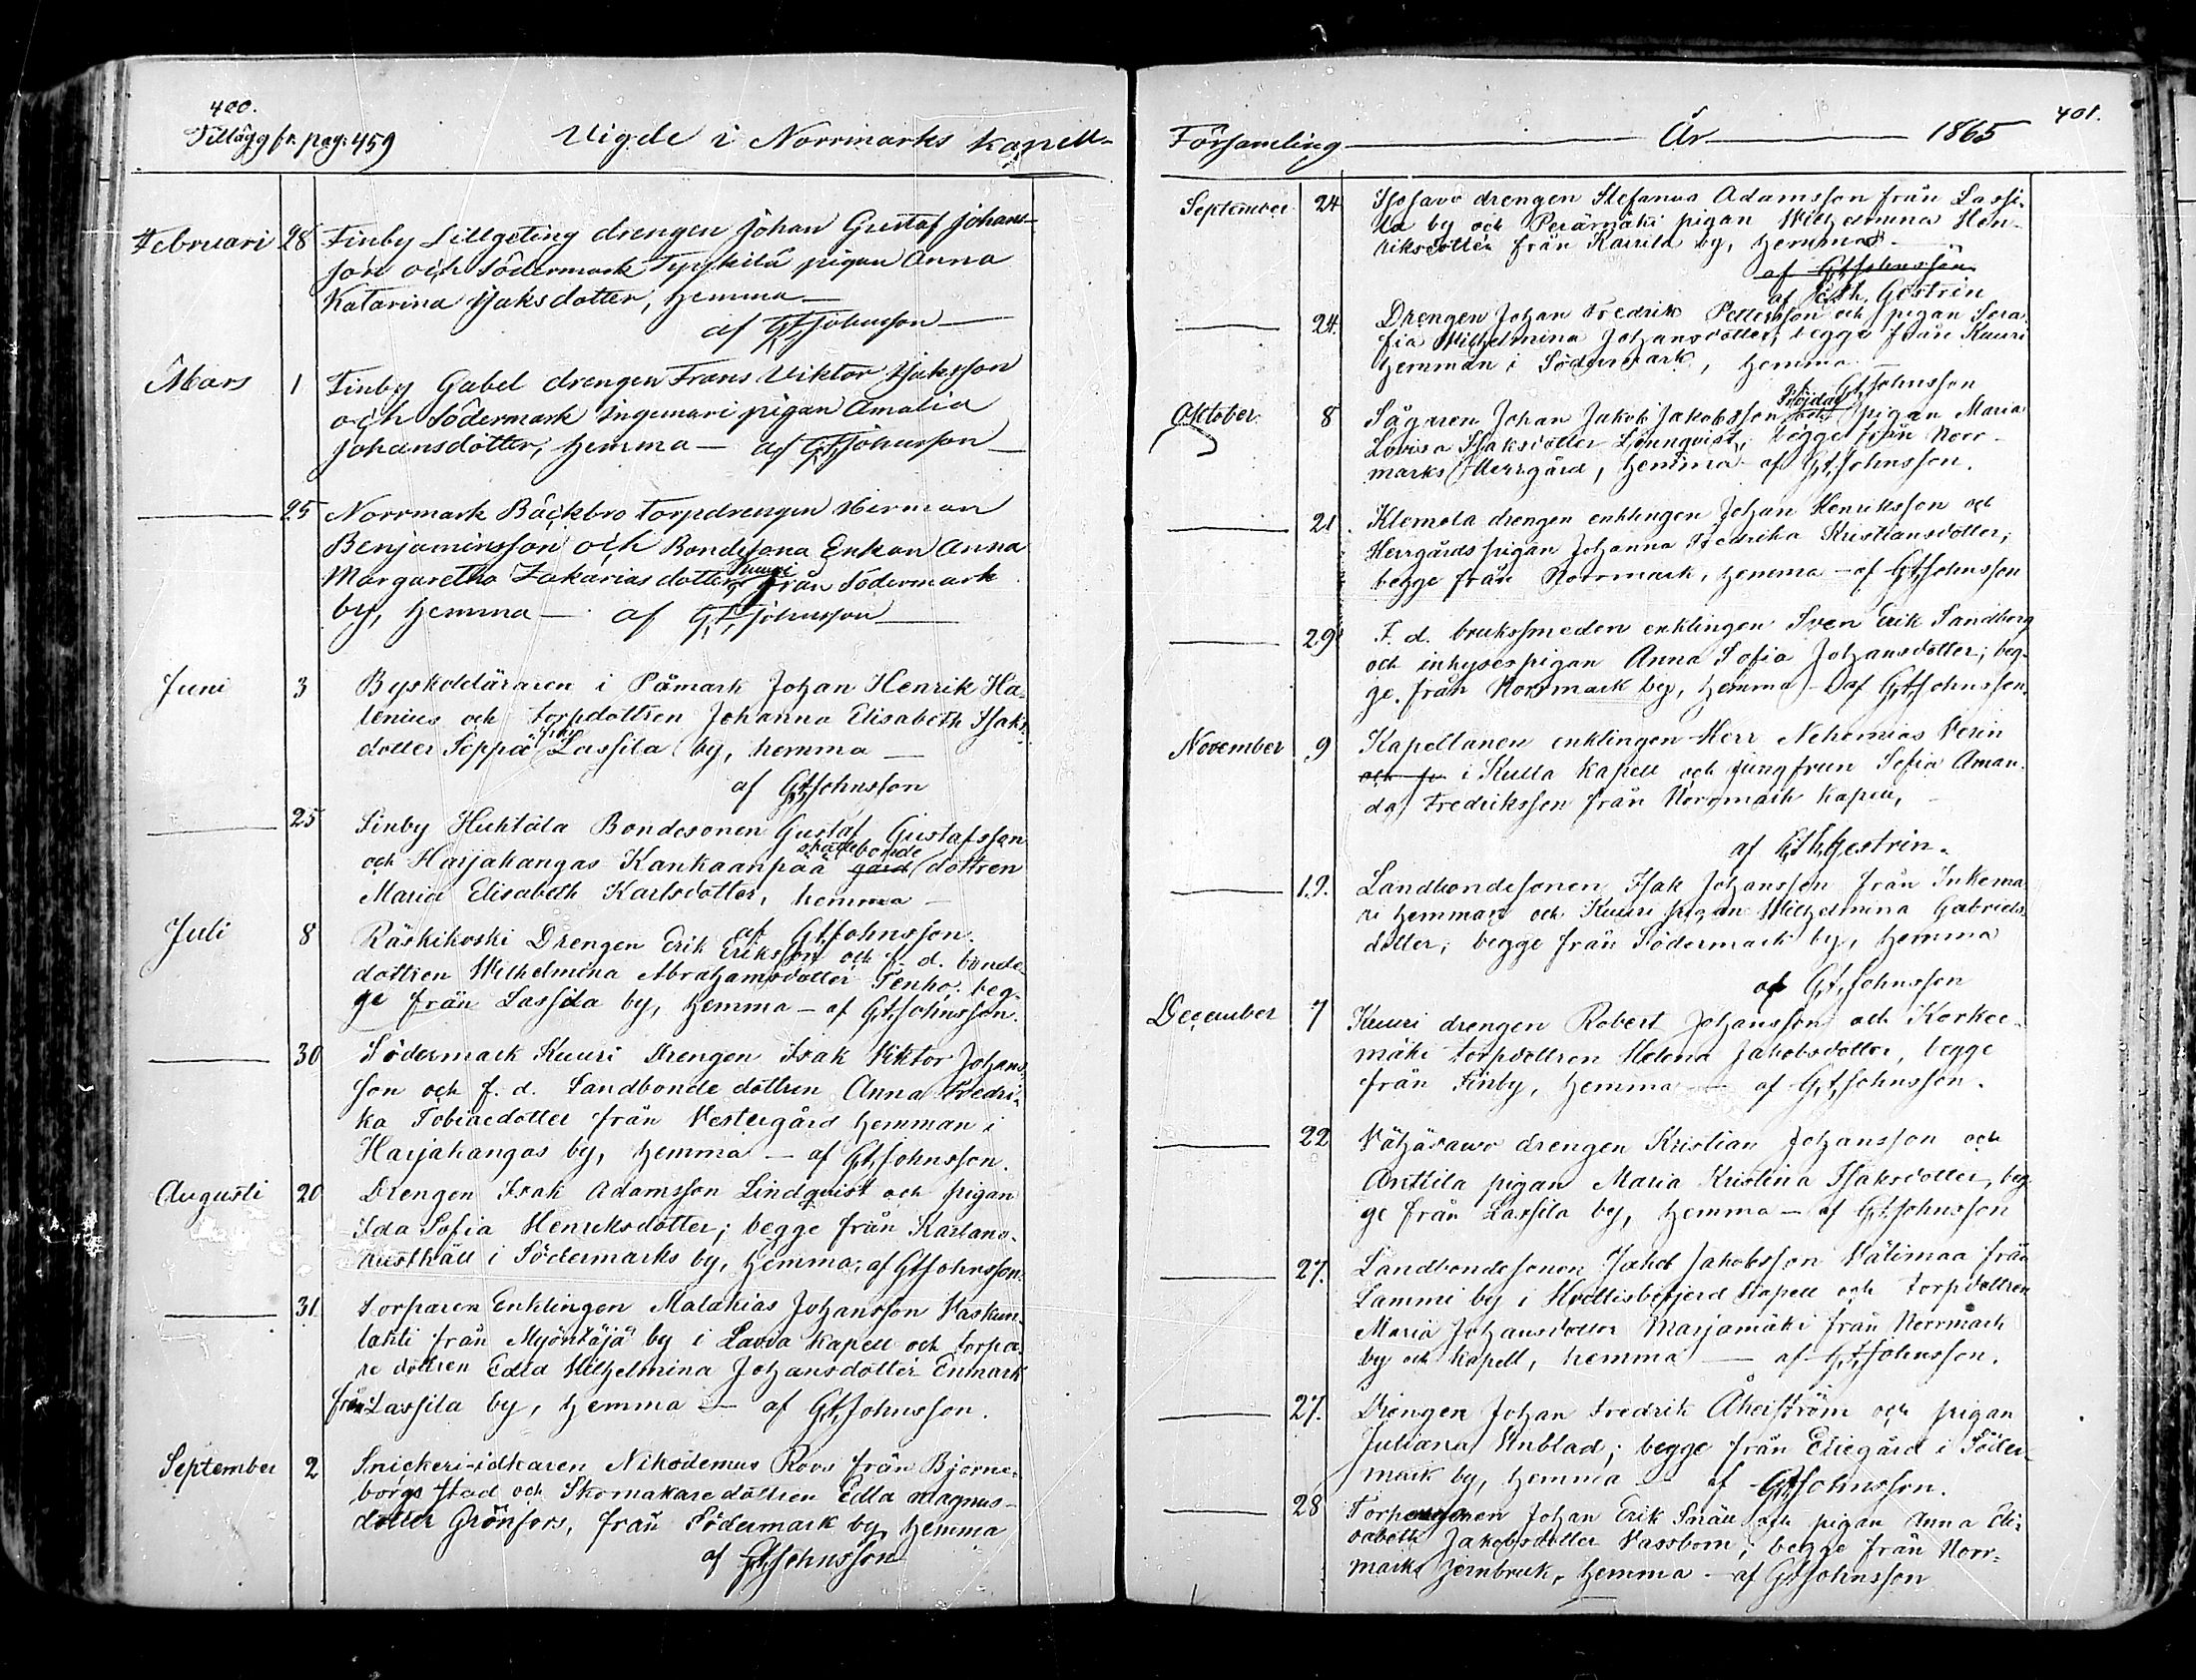 400.
Tillägg fr. pag: 459
Vigde i Norrmarks Kapell-
Februari 28 Finby Lillgeting drengen Johan Gustaf Johans-
son och Södermark Tyskilä pigan Anna
Katarina Isaksdotter, hemma —
af G. A. Johnsson —
Mars 1 Finby Gabel drengen Frans Viktor Isaksson
och Södermark Ingemari pigan Amalia
Johansdotter, hemma — af G. A. Johnsson —
— 25 Norrmark Bäckbro Torpdrengen Herman
Benjaminsson och Bondesona Enkan Anna
Margaretha Zakariasdotter Kuuri från Södermark
by, hemma — af G. A. Johnsson —
Juni 3 Byskolläraren i Påmark Johan Henrik Ha-
lenius och torpdottren Johanna Elisabeth Isaks-
dotter Seppä från Lassila by, hemma —
af G. A. Johnsson
— 25 Finby Huhtala Bondesonen Gustaf Gustafsson
och Harjakangas Kankaanpää skattebonde gård dottren
Maria Elisabeth Karlsdotter, hemma —
af G. A. Johnsson.
Juli 8 Räskikoski Drengen Erik Eriksson och f. d. bonde-
dottren Wilhelmina Abrahamsdotter Tenho. beg-
ge från Lassila by, hemma — af G. A. Johnsson.
— 30 Södermark Kuuri Drengen Isak Viktor Johans-
son och f. d. Landbonde dottren Anna Fredri-
ka Tobiaedotter från Vestergård hemman i
Harjakangas by, hemma — af G. A. Johnsson.
Augusti 20 Drengen Isak Adamsson Lindqvist och pigan
Ida Sofia Henriksdotter; begge från Karlano-
rusthåll i Södermarks by, hemma, af G. A. Johnsson.
— 31. Torparen Enklingen Malakias Johansson Vaskun-
lahti från Myöntäjä by i Lavia Kapell och torpa-
re dottren Edla Wilhelmina Johansdotter Enmark
från Lassila by, hemma — af G. A. Johnsson.
September 2 Snickeri-idkaren Nikodemus Roos från Björne-
borgs stad och Skomakare dottren Edla Magnus-
dotter Grönfors, från Södermark by, hemma
af G. A. Johnsson
401.
Församling — År — 1865
September 24 Isosavo drengen Stefanus Adamsson från Lassi-
la by och Perämäki pigan Wilhelmina Hen-
riksdotter från Kairila by, hemma —
af G. A. Johnsson
af Gestrin
— 24. Drengen Johan Fredrik Pettersson och pigan Sera-
fia Wilhelmina Johansdotter, begge från Kuuri
hemman i Södermark, hemma —
af G. A. Johnsson
Oktober 8 Sågaren Johan Jakob Jakobsson och pigan Maria
Lovisa Isaksdotter Lönnqvist, begge från Norr-
marks Herrgård, hemma af G. A. Johnsson.
— 21. Klemola drengen enklingen Johan Henriksson och
Herrgårds pigan Johanna Fredrika Kristiansdotter,
begge från Norrmark, hemma — af G. A. Johnsson
— 29 F. d. bruksmeden enklingen Sven Erik Sandberg
och inhysespigan Anna Sofia Johansdotter; beg-
ge från Norrmark by, hemma — af G. A. Johnsson.
November 9 Kapellanen enklingen Herr Nehemias Verin
i Kulla Kapell och jungfrun Sofia Aman-
da Fredriksson från Norrmark Kapell, —
af Gestrin.
— 19. Landbondesonen Isak Johansson från Inkema-
ri hemman och Kuuri pigan Wilhelmina Gabriels-
dotter; begge från Södermark by, hemma
af G. A. Johnsson
December 7 Kuuri drengen Robert Johansson och Korkee-
mäki torpdottren Helena Jakobsdotter, begge
från Finby, hemma — af G. A. Johnsson.
— 22 Vähäsavo drengen Kristian Johansson och
Anttila pigan Maria Kristina Isaksdotter, beg-
ge från Lassila by, hemma — af G. A. Johnsson
— 27. Landbondesonen Jakob Jakobsson Välimaa från
Lammi by i Hvittisbofjerd Kapell och torpdottren
Maria Johansdotter Marjamäki från Norrmark
by och Kapell, hemma — af G. A. Johnsson.
— 27. Drengen Johan Fredrik Åkerström och pigan
Juliana Unblad; begge från Eliegård i Söder-
mark by, hemma — af G. A. Johnsson.
— 28 Johan Erik Snäll och pigan Anna Eli-
sabeth Jakobsdotter Vassbom; begge från Norr-
marks Jernbruk, hemma — af G. A. Johnsson